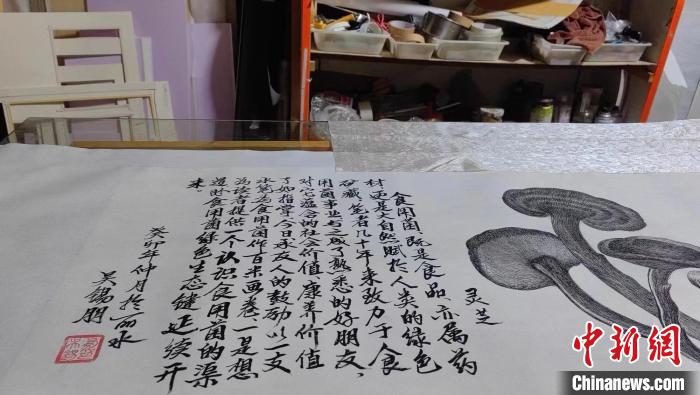 灵芝
食用菌既是食品、亦属药
材更是大自然赋於人类的绿色
矿藏、笔者几十年来致力于食
用菌事业与之成了熟悉的好朋友、
对它蕴含的社会价值、康养价值
了如指掌、今日承友人的鼓励以一支
水笔为食用菌作百米画卷、一是想
为读者提供一个认识食用菌的渠
道 食用菌绿色生态健延续开
来.
癸卯年仲月於丽水
吴锡朋
中新网
Chinanews.com